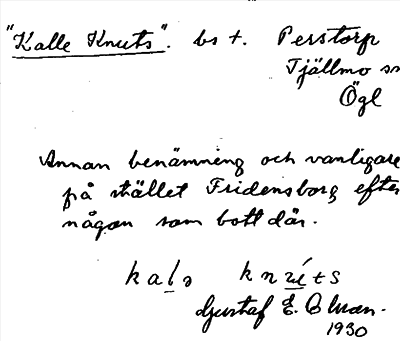 "Kalle Knuts". bs t. Perstorp
Tjällmo sn
Ögl
Annan benämning och vanligare
på stället Fridensborg efter
någon som bott där.
kalə knúts
Gustaf E.
1930